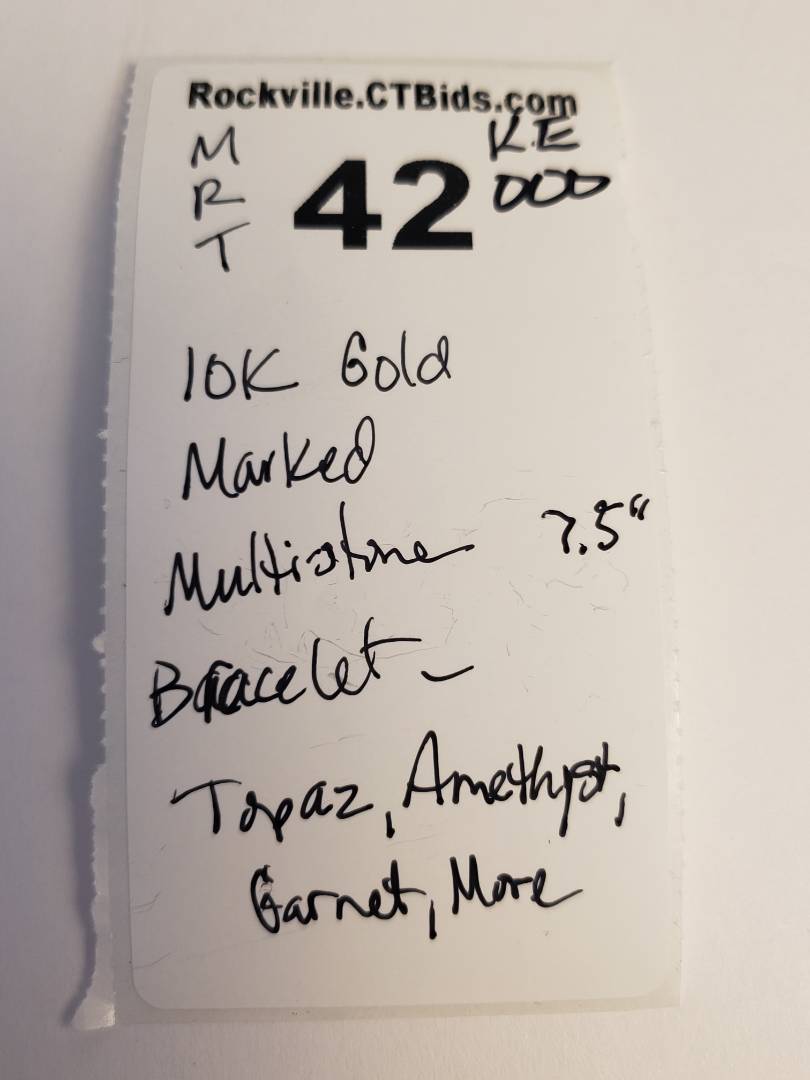 Rockville.CTBids.com
M
R
T
42
K.E
000
10K Gold
Marked
Multistone 7.5"
Bracelet –
Topaz, Amethyst,
Garnet, More